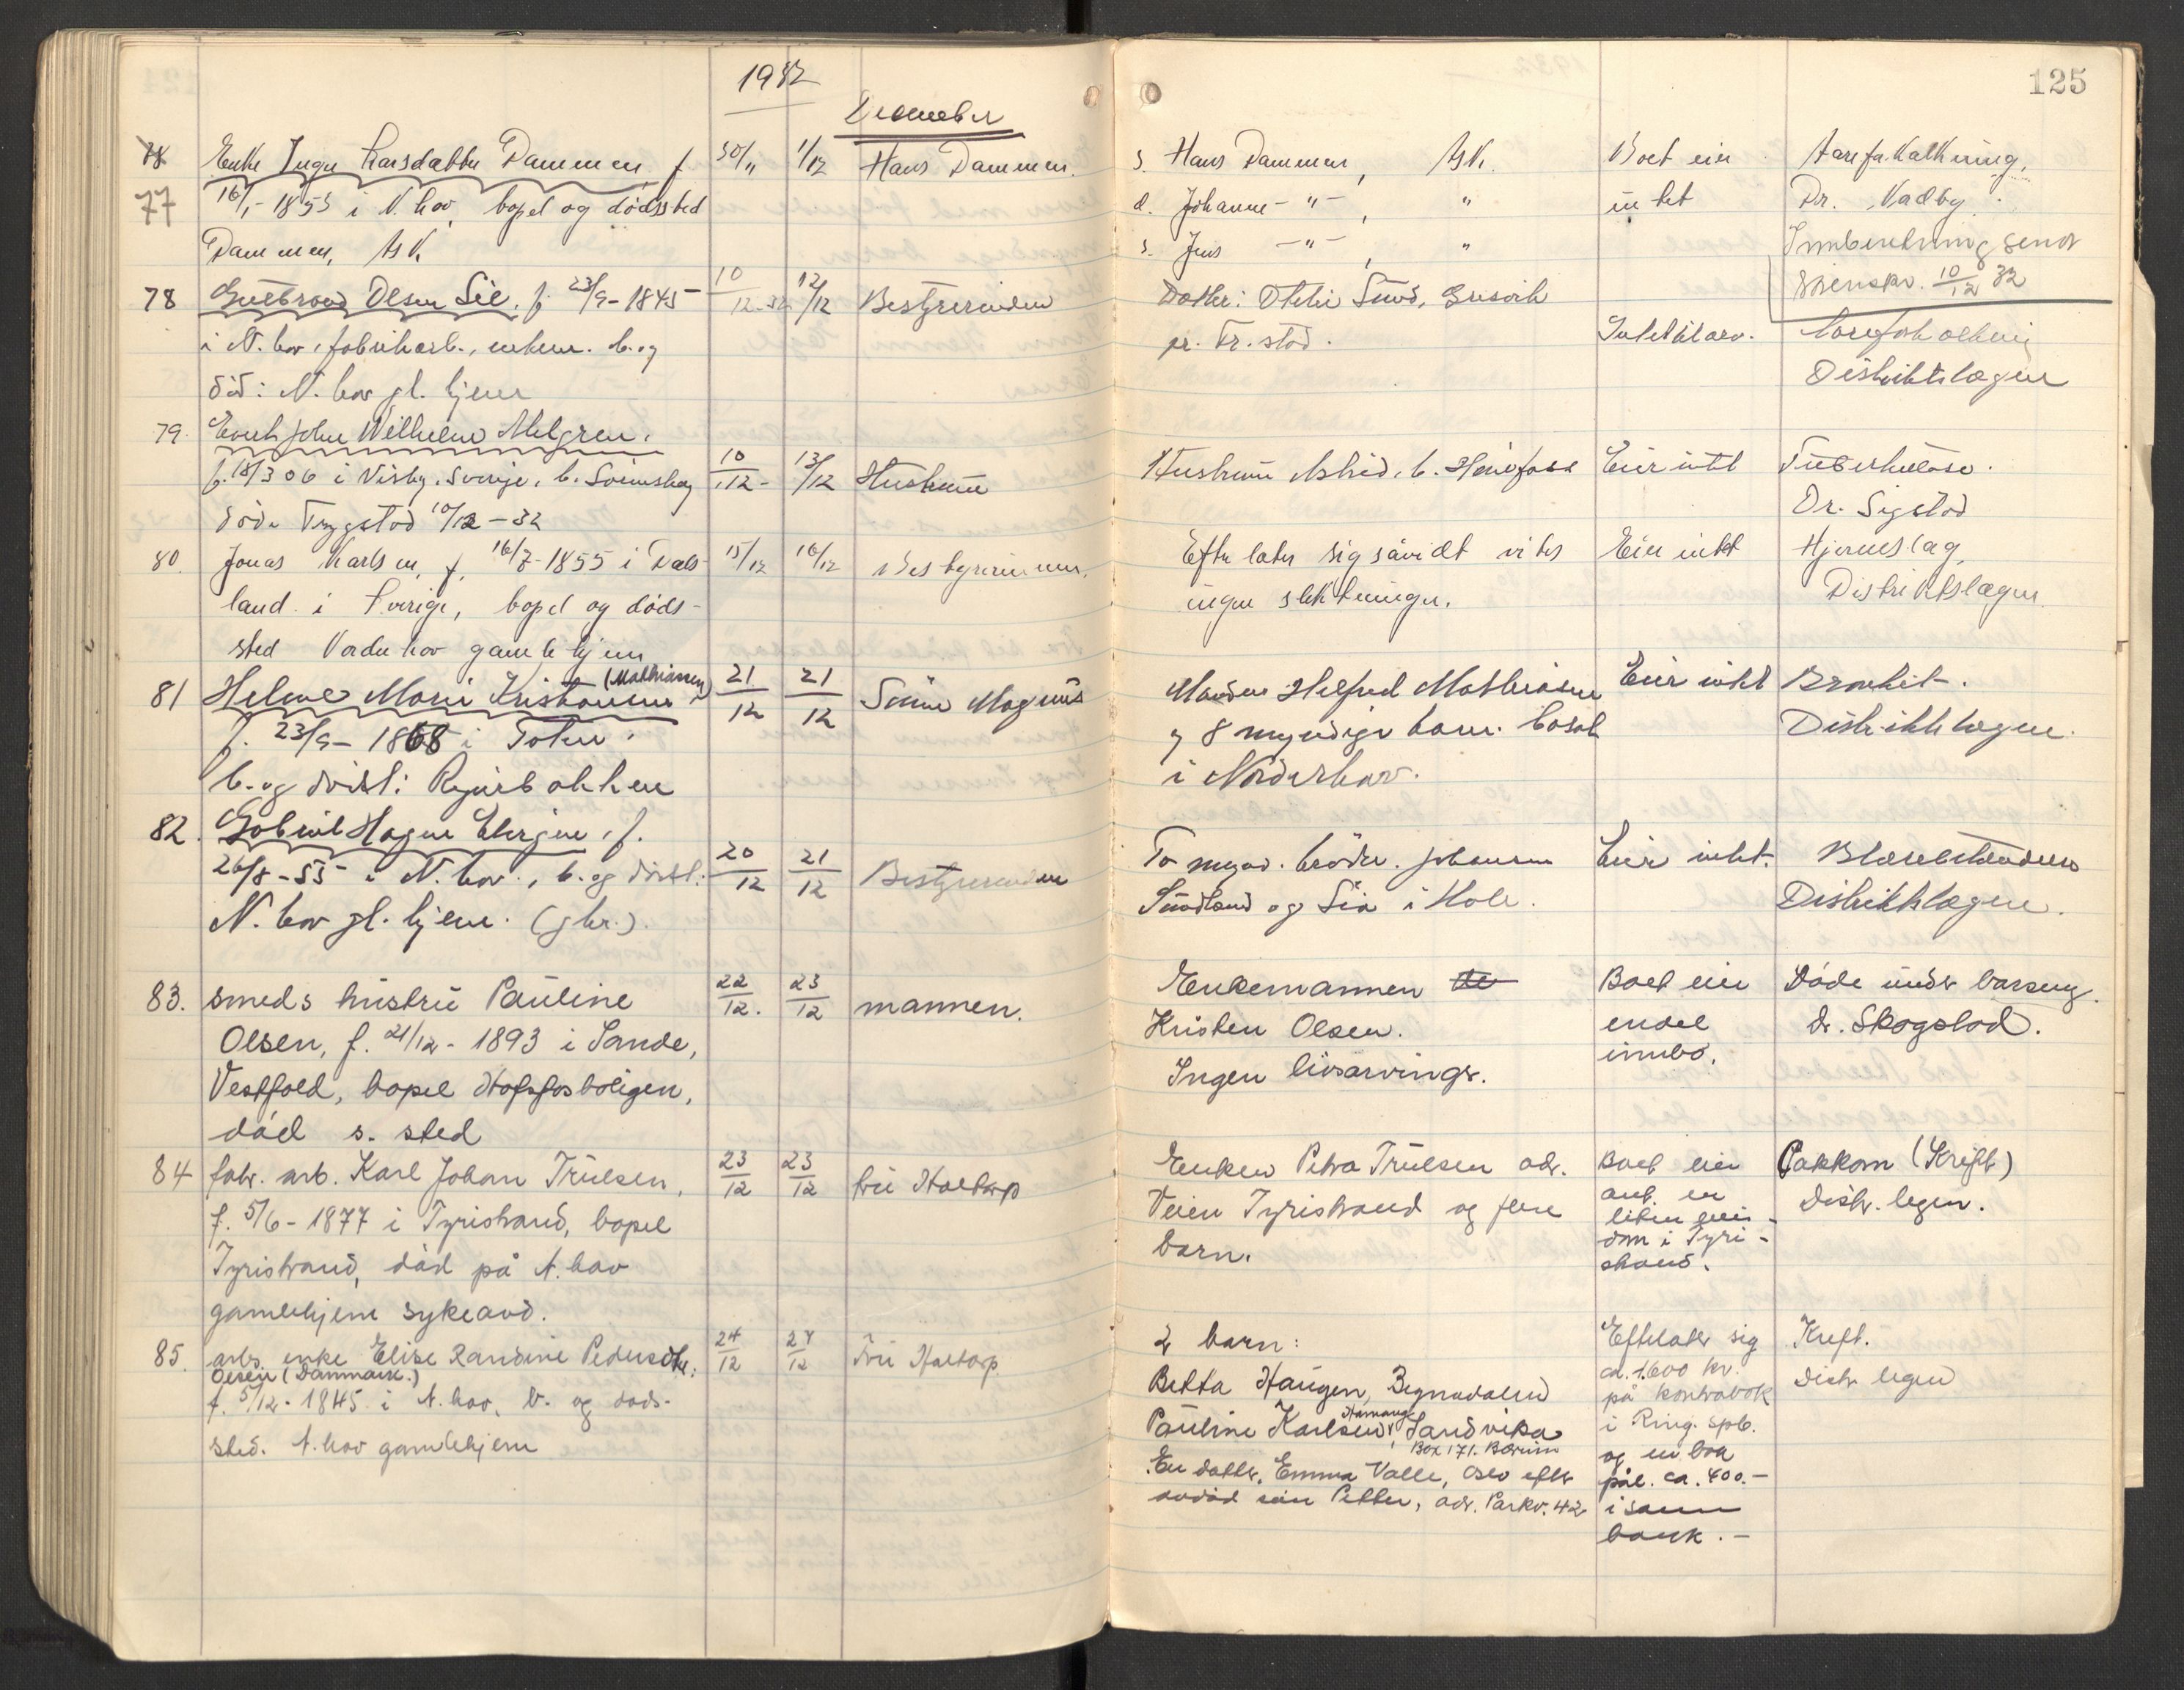 1932
December
125
78
77
Enke Inger Larsdatter Dammen f
16/1-1853 i N.hov, bopel og dødssted
Dammen, Ask.
30/11
1/12
Hans Dammen.
s. Hans Dammen, Ask.
d. Johanne -"-, "
s. Jens -"-, "
Boet eier
intet
Aarefa.kalkning,
Dr. Vadby.
Innberetning sendt
Skiensskr. 10/12 32
78
Gulbrand Olsen Lie. f. 23/9-1845
i N.hov, fabrikarb., enkem. b. og
död: N.hov gl. hjem
10/12-32
12/12
Bestyrerinden
Datter: Otelie Sund,
pr. Tr.stad.
Intet at arv.
Distriktslægen
79.
John Wilhelm Ahlgren.
f. 18/3 06 i Visby, Sverige, b.
döde Trygstad 10/12-32
10/12-
13/12
Hustruen
Hustruen Astrid, b. Hönefoss
Eier intet
Tuberkulose.
Dr. Sigstad
80.
Jonas Karlsen, f. 16/7-1855 i Dals-
land i Sverige, bopel og döds-
sted Norderhov gamlehjem
15/12
16/12
Bestyrerinnen.
Efterlater sig såvidt vites
ingen slektninger.
Eier intet
Hjerneslag,
Distriktslægen.
81
Helene Marie Kristensen (Mathiassen)
f. 23/9-1868 i Toten.
b. og dödst:
21/12
21/12
Signe Magnus
Manden Helfred Mathiasen
og 8 myndige barn. bosat
i Norderhov.
Eier intet
Bronkit.
Distriktslægen.
82.
Gabriel Hagen Elvigen, f.
26/8-55 i N.hov., b. og dödst:
N.hov gl. hjem.
20/12
21/12
Bestyrerinden
To mynd. brödre. Johannes
Sundland og Lia i Hole.
Eier intet.
Distriktslægen.
83.
smeds hustru Pauline
Olsen, f. 21/12-1893 i Sande,
Vestfold, bopel Hofsfosboligen,
død s. sted
22/12.
23/12
mannen.
Enkemannen
Kristen Olsen.
Ingen livsarvinger.
Boet eier
endel
innbo.
Døde under barseng.
dr. Skogstad.
84
fabr. arb. Karl Johan Trulsen,
f. 5/6-1877 i Tyristrand, bopel
Tyristrand, død på N.hov
gamlehjem sykeavd.
23/12
23/12
fru Haltorp
Enken Petra Trulsen adr.
Veien Tyristrand og flere
barn.
Boet eier
ant. en
liten eien-
dom i Tyri-
strand.
Sakkom (Kreft)
distr. legen.
85.
arb. enke Elise Randine Pedersdtr.
Olsen (Danmark.)
f. 5/12-1845 i N.hov, b. og døds-
sted. N.hov gamlehjem
24/12
27/12
Fru Haltorp.
2 barn:
Betta Haugen, Begnadalen
Pauline Karlsen, Hamang, Sandvika
Box 171. Bærum
En datter, Emma Valle, Oslo efter
avdød søn Petter, adr. Parkv. 42
Efterlater sig
ca. 1.600 kr.
på kontrabok
i Ring. spb.
og en bok
pål. ca. 400.-
i samme
bank.-
Kreft.
distr. legen